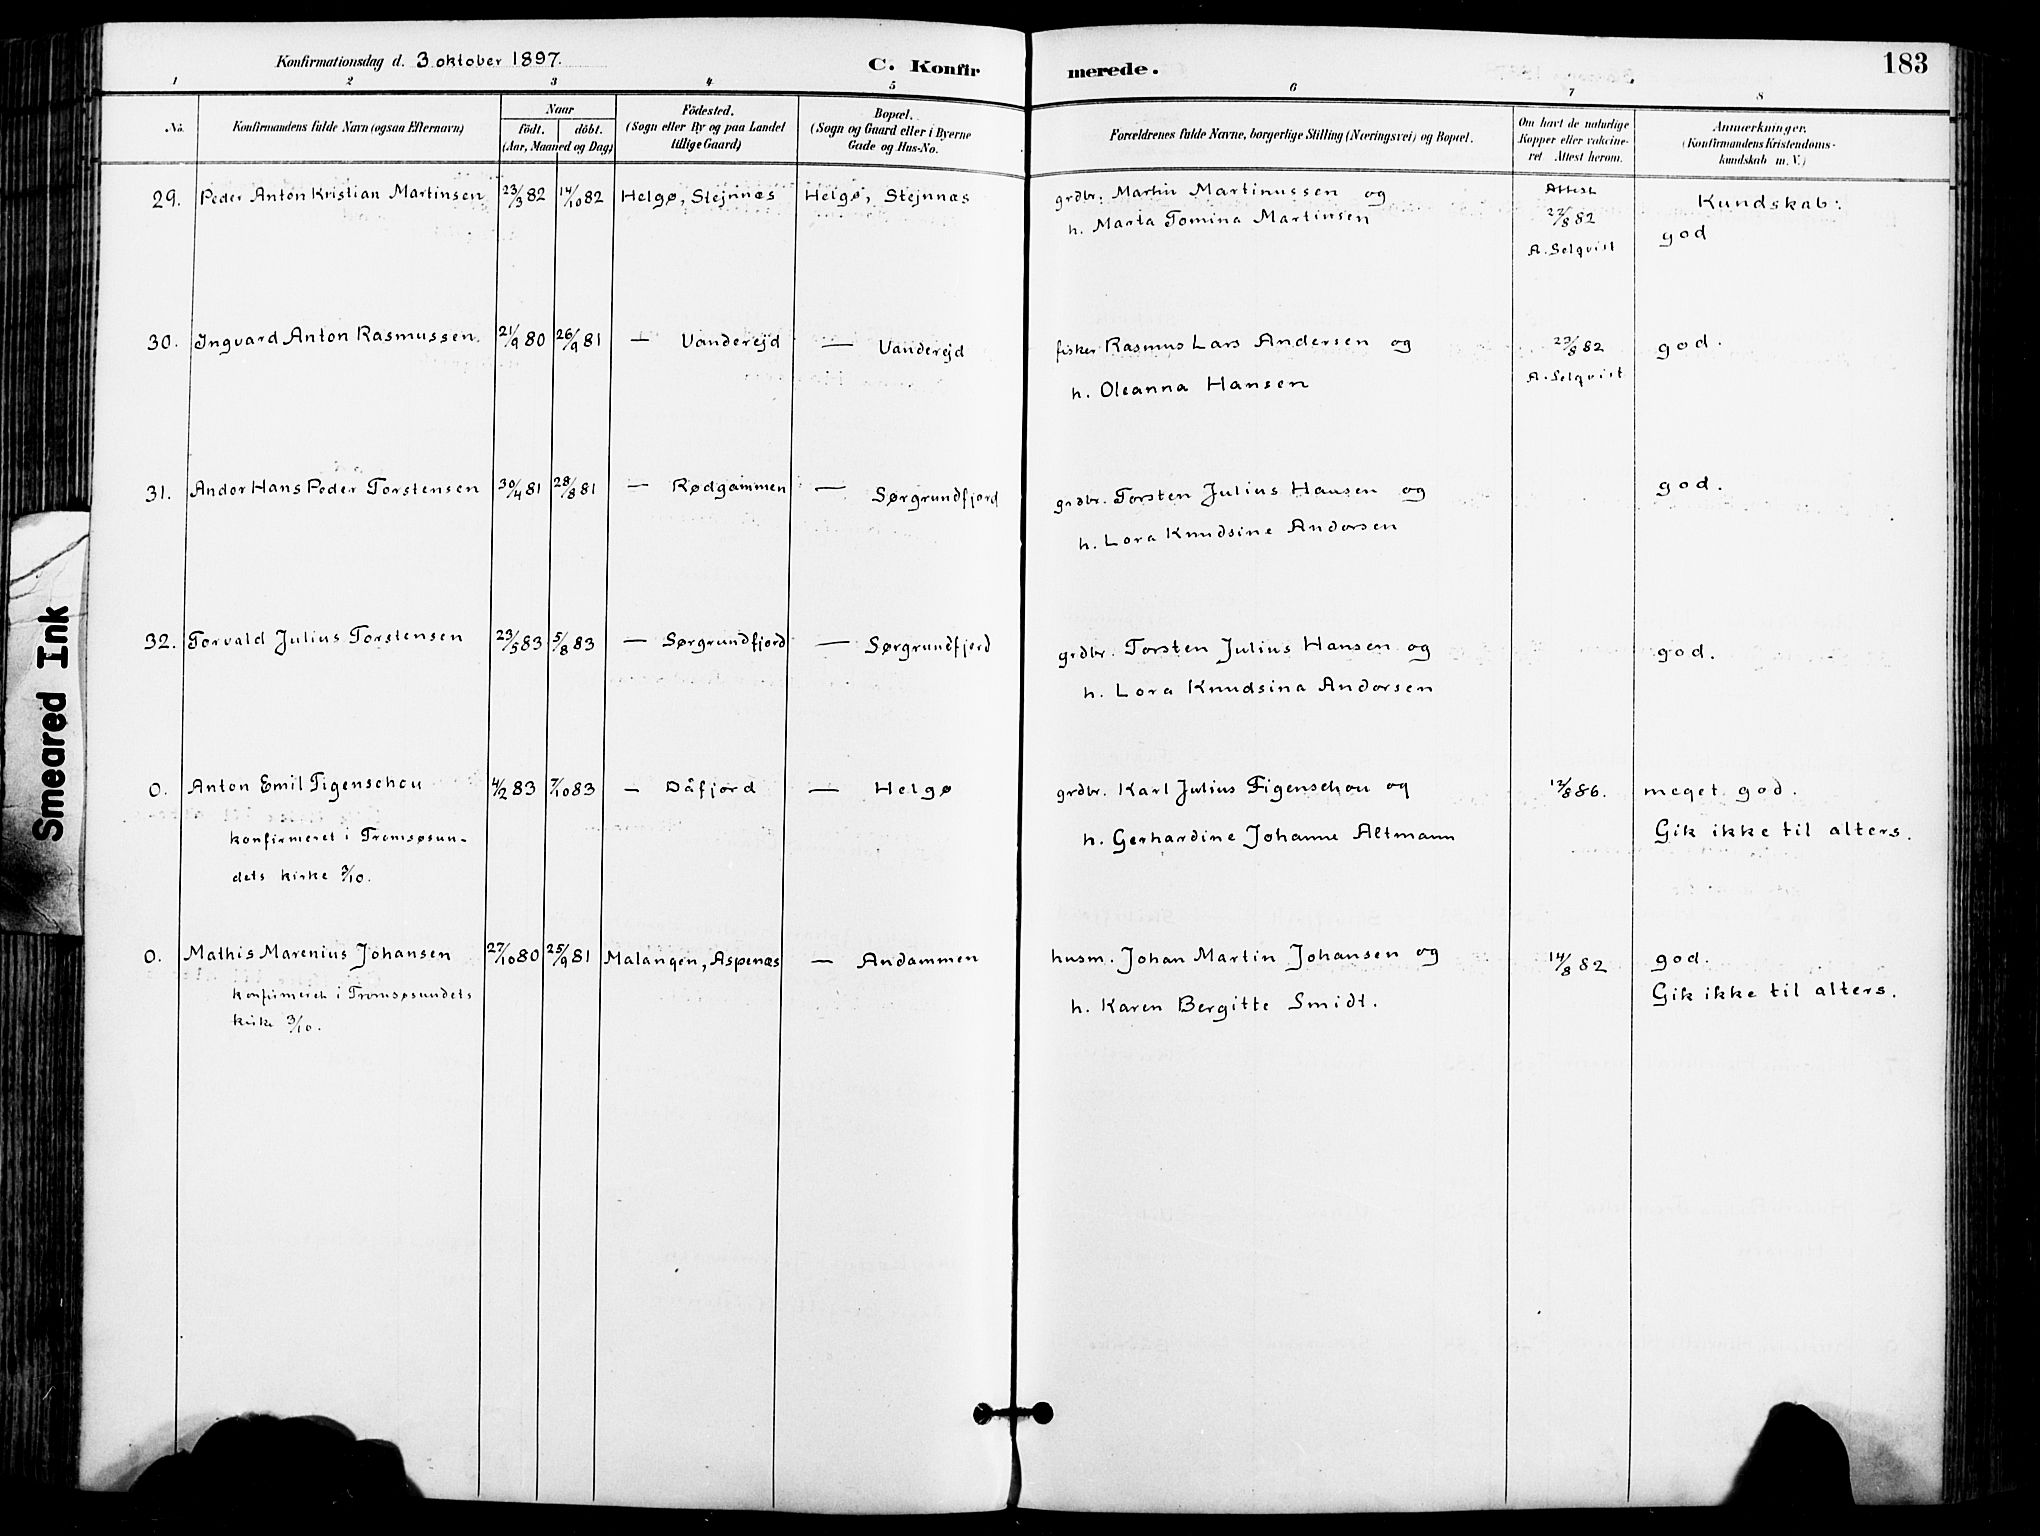 Konfirmationsdag d. 3 oktober 1897. C. Konfirmerede. 183
1 2 3 4 5 6 7 8
No. Konfirmandens fulde Navn (ogsaa Efternavn) Naar Födested. Bopæl. Forældrenes fulde Navne, borgerlige Stilling (Næringsvei) og Bopæl. Om havt de naturlige Anmærkninger.
födt. döbt. (Sogn eller By og paa Landet (Sogn og Gaard eller i Byerne Kopper eller vakcine- (Konfirmandens Kristendoms-
(Aar, Maaned og Dag) tillige Gaard) Gade og Hus-No. ret Attest herom. kundskab m. V.)
29. Peder Anton Kristian Martinsen 23/3 82 14/10 82 Helgø, Stejnnæs Helgø, Stejnnæs grdbr. Martin Martinussen og Attest Kundskab:
h. Marta Tomina Martinsen 22/8 82 god
A. Selqvist
30. Ingvard Anton Rasmussen. 21/9 80 26/9 81 — Vanderejd — Vanderejd fisker Rasmus Lars Andersen og 23/8 82 god.
h. Oleanna Hansen A. Selqvist
31. Andor Hans Peder Torstensen 30/4 81 28/8 81 — Rødgammen — Sørgrundfjord grdbr. Torsten Julius Hansen og god.
h. Lora Knudsine Andorsen
32. Torvald Julius Torstensen 23/5 83 5/8 83 — Sørgrundfjord — Sørgrundfjord grdbr. Torsten Julius Hansen og god.
h. Lora Knudsina Andorsen
0. Anton Emil Figenschou 4/2 83 7/10 83 — Dåfjord — Helgø grdbr. Karl Julius Figenschou og 12/8 86. meget god.
konfirmeret i Tromsøsun- h. Gerhardine Johanne Altmann Gik ikke til alters.
dets kirke 3/10.
0. Mathis Marenius Johansen 27/10 80 25/9 81 Malangen, Aspenæs — Andammen husm. Johan Martin Johansen og 14/8 82 god.
konfirmeret i Tromsøsundets h. Karen Bergitte Smidt. Gik ikke til alters.
kirke 3/10.
Smeared Ink